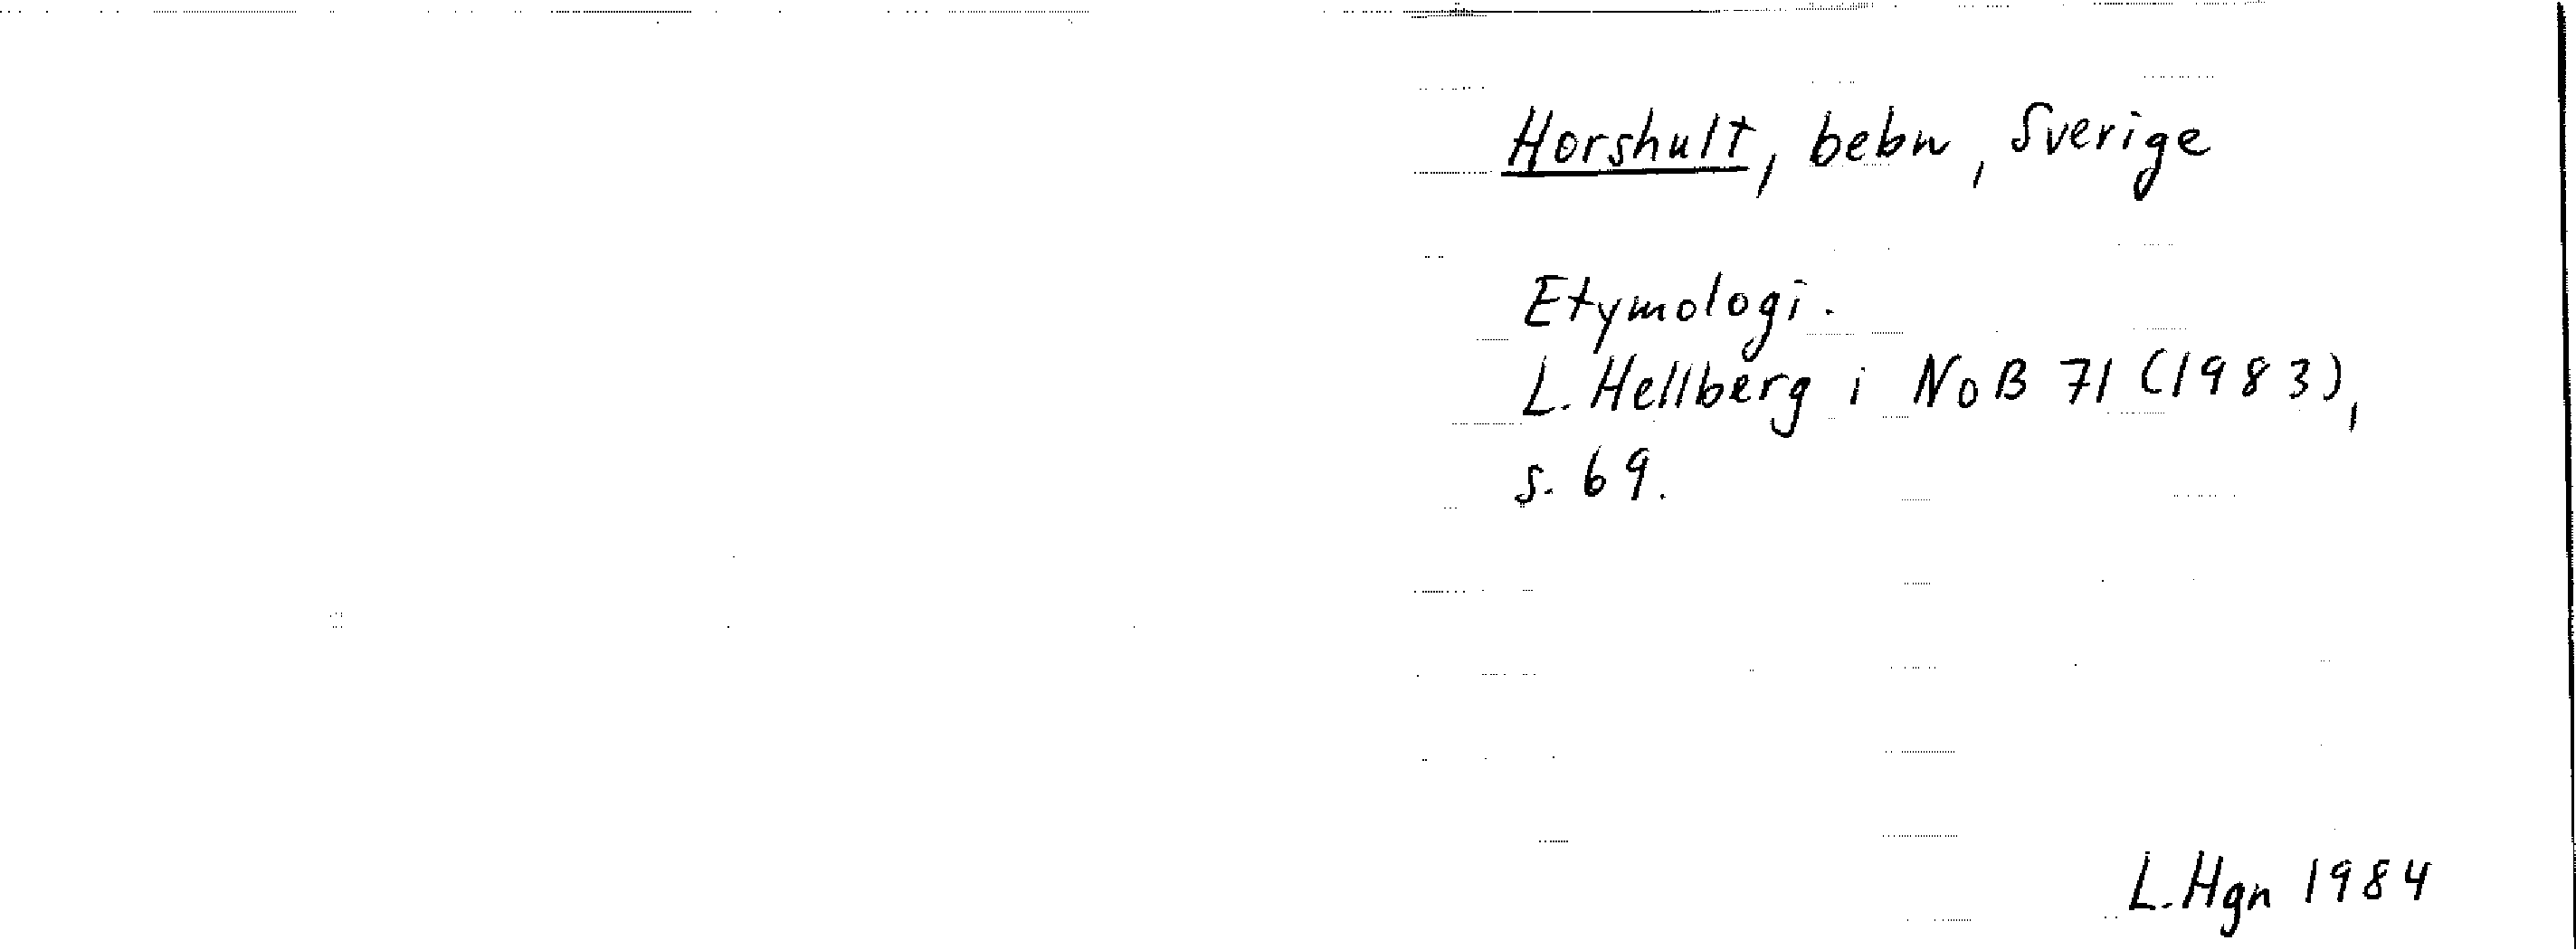 Horshult, bebn, Sverige
Etymologi.
L. Hellberg i NoB 71 (1983),
s. 69.
L. Hgn 1984